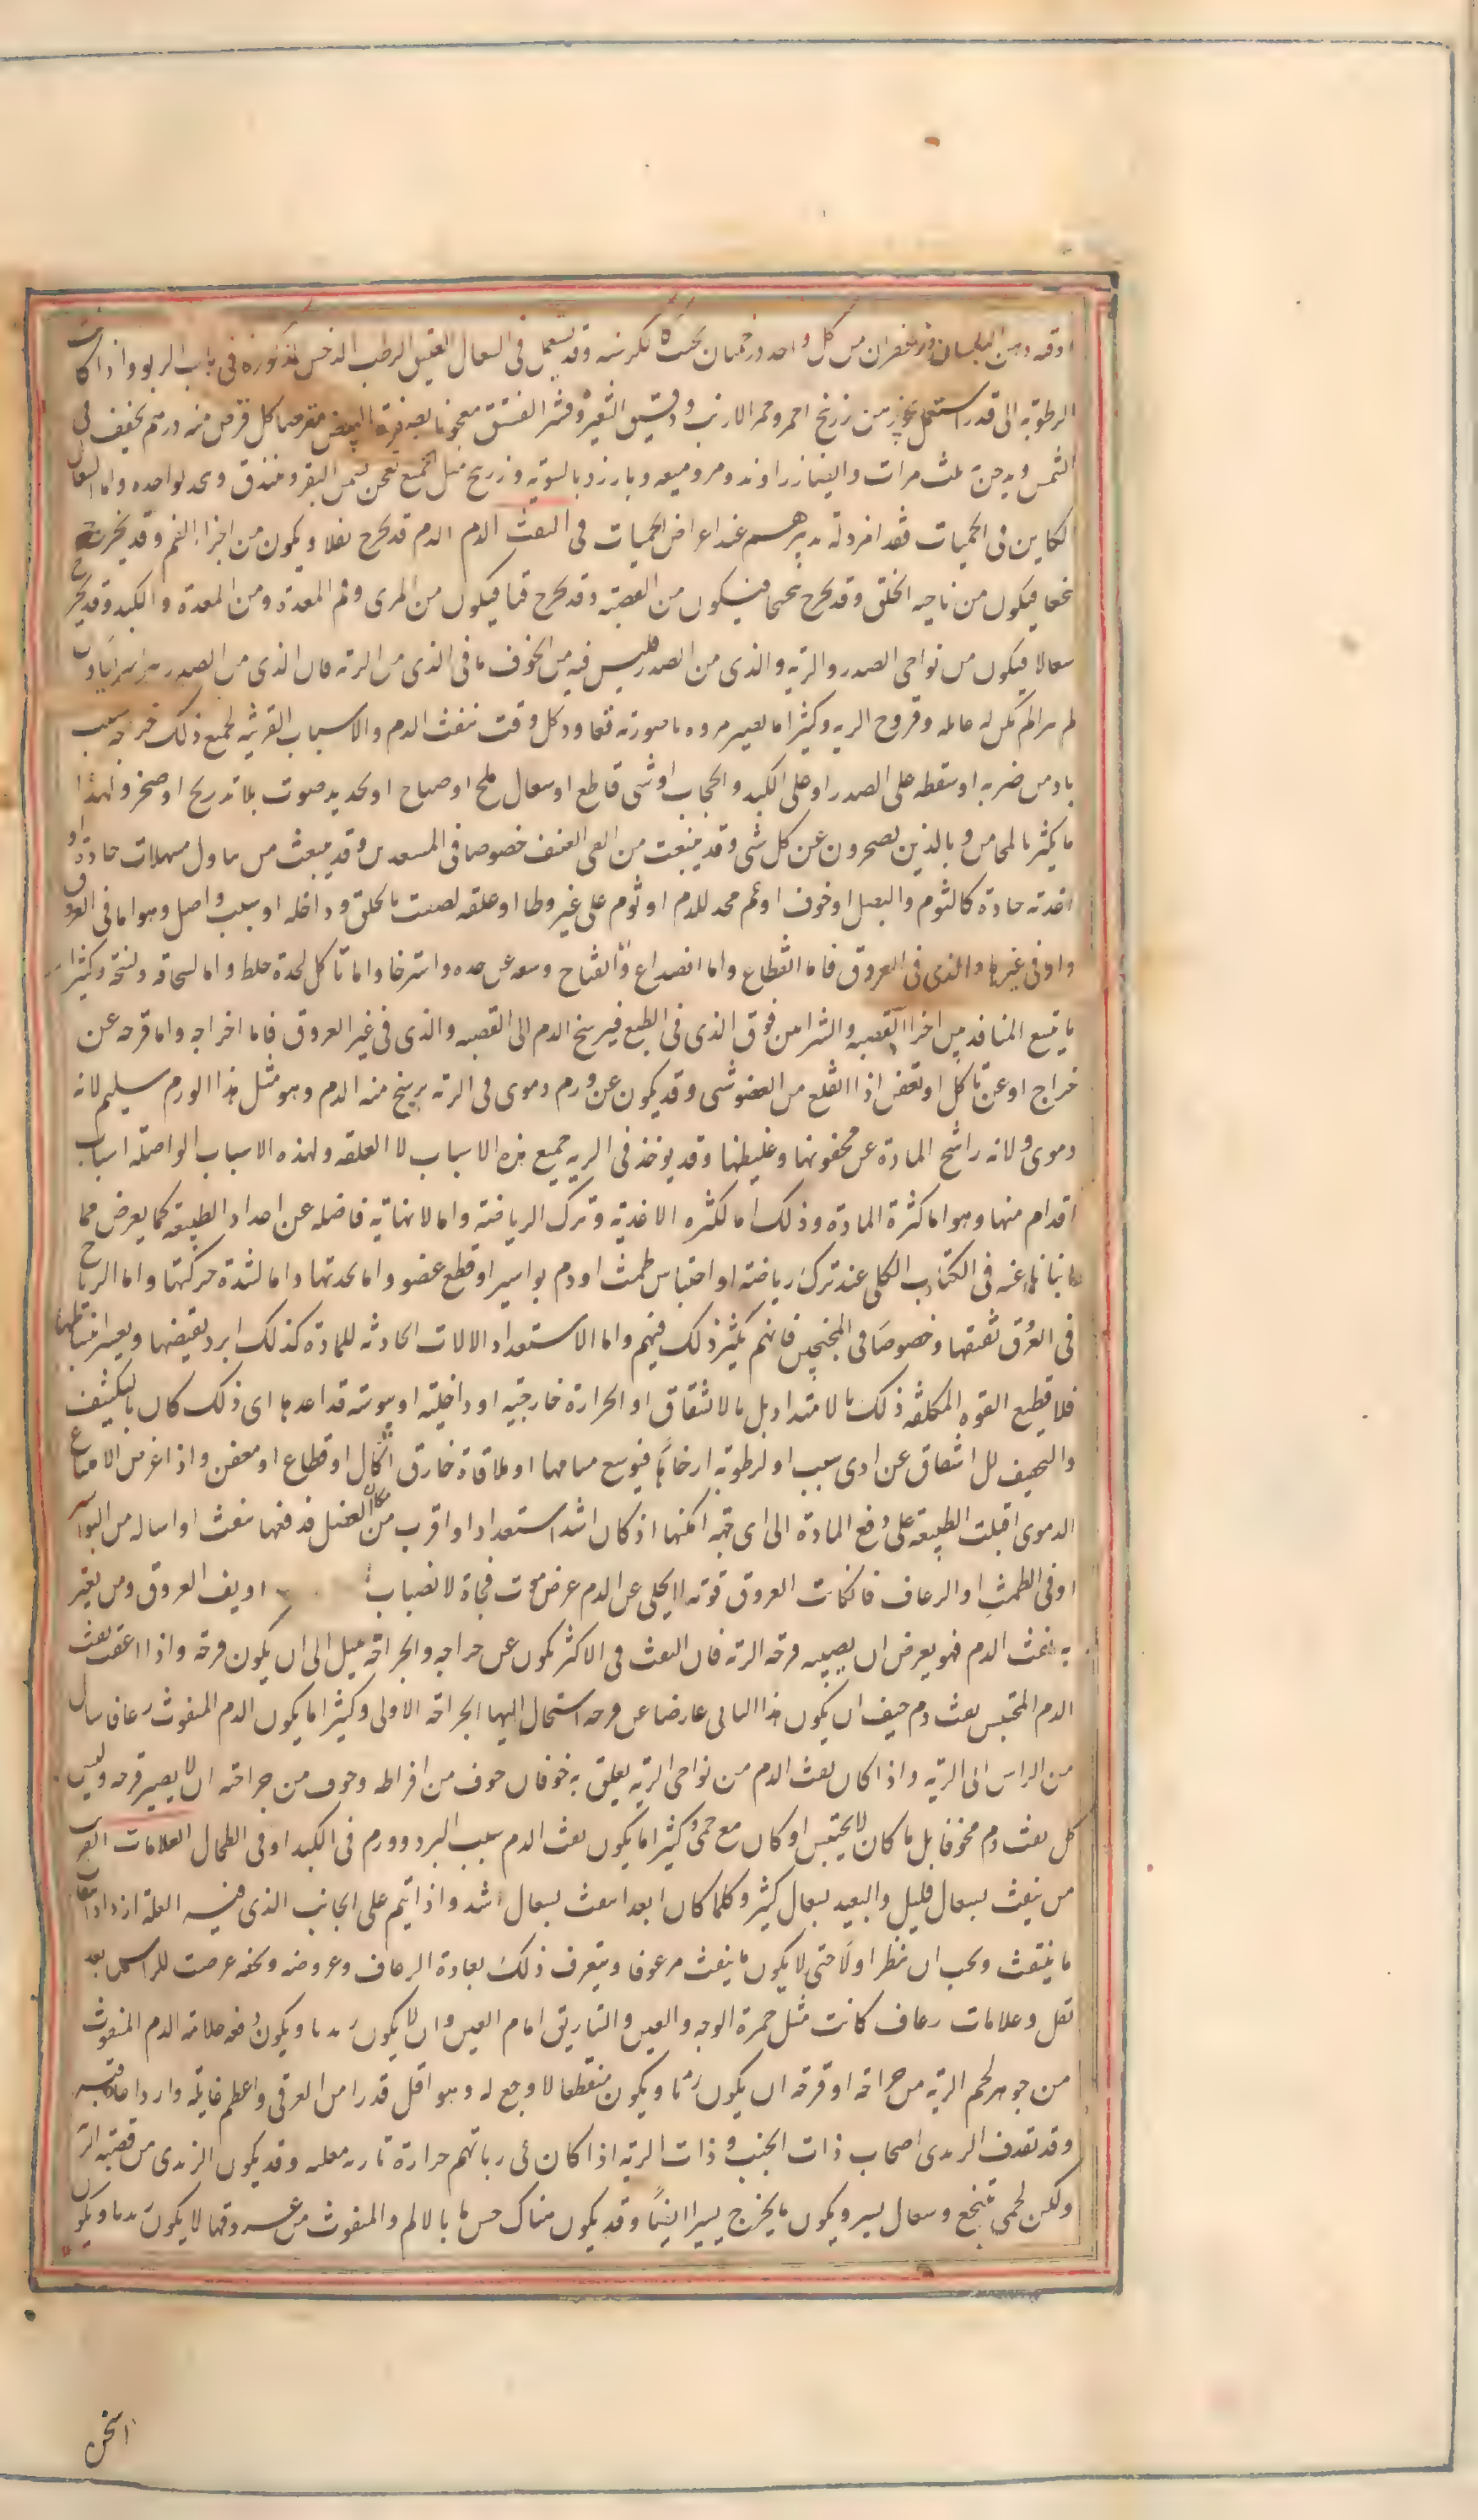 اوقيه دهن البلسان وزعفران من كل واحد درخميان يحبب كالكرسنه وقد يستعمل فى السعال العتيق الرطب الدخن المذكوره فى باب الربو واذا كانت
الرطوبه الى قدر استعمل من زرنيخ احمر وخرء الارنب ودقيق الشعير وقشر الفستق معجونا بصفرة البيض مقرصا كل قرص منه درهم يجفف فى
الشمس ويدخن ثلث مرات وايضا زراوند ومر وميعه وبارزد بالسويه وزرنيخ مثل الجميع يعجن بسمن البقر ويبندق ويدخن بواحده واما السعال
الكاين فى الحميات فقد افرد له تدبير عند اعراض الحميات فى النفث الدم الدم قد يخرج تفلا ويكون من اجزا الفم وقد يخرج
تنخعا فيكون من ناحيه الحلق وقد يخرج تنحنحا فيكون من القصبه وقد يخرج قيا فيكون من المرى وفم المعدة ومن المعدة والكبد وقد يخرج
سعالا فيكون من نواحى الصدر والريه والذى من الصدر فليس فيه من الخوف ما فى الذى من الريه فان الذى من الصدر
وقروح الريه وكثيرا ما تعاود كل وقت نفث الدم والاسباب القريبه لجميع ذلك جراحه لسبب
باد من ضربه او سقطه على الصدر او على الكبد والحجاب او شى قاطع او سعال ملح او صياح او تحديد صوت بلا تدريج او ضجر ولهذا
ما يكثر بالمجانين وبالذين يضجرون عن كل شى وقد ينبعث من القى العنيف خصوصا فى المستعدين وقد ينبعث من تناول مسهلات حادة او
اغذيه حادة كالثوم والبصل او خوف او غم محد للدم او نوم على غير وطا او علقه لصقت بالحلق وداخله او سبب واصل وهو اما فى العروق
واو فى غيرها والذى فى العروق فاما انقطاع واما انصداع واما انفتاح وسعه عن حده واسترخا واما تاكل لحدة خلط واما لسخافه وكثيرا
ما يتسع المنافذ من اجزا القصبه والشرايين فوق الذى فى الطبع فيرشح الدم الى القصبه والذى فى غير العروق فاما جراحه واما قرحه عن
خراج او عن تاكل او تعفن اذا انقلع من العضو شى وقد يكون عن ورم دموى فى الريه يرشح منه الدم وهو مثل هذا الورم سليم لانه
دموى ولانه راشح المادة عن محقونها وغليظها وقد يوخذ فى الريه جميع هذه الاسباب لا العلقه ولهذه الاسباب الواصله اسباب
اقدام منها وهو اما كثرة المادة وذلك اما لكثره الاغذيه وترك الرياضه واما لانهايه فاضله عن اعداد الطبيعه كما يعرض مما
انبانا عنه فى الكتاب الكلى عند ترك رياضه او احتباس طمث او دم بواسير او قطع عضو واما لحدتها واما لشدة حركتها واما لرياح
فى العرق تفتقها وخصوصا فى المتخمين فانهم يكثر ذلك فيهم واما الاستعداد الالات الحادثه للمادة كذلك ابرد يقبضها ويعسر انبساطها
فلا تطيع القوه المكلفه ذلك بالامتداد بل بالانشقاق او الحرارة خارجيه او داخليه او يبوسه قد اعدها اى ذلك كان بالتكثيف
والتجفيف للانشقاق عن ادى سبب او لرطوبه ارخاها فتوسع مسامها او ملاقاة خارق اكال او قطاع او معفن واذا عرض الامتلاء
الدموى اقبلت الطبيعه على دفع المادة الى اى جهه امكنها اذ كان اشد استعدادا او اقرب من مكان الفضل فدفعها بنفث او اساله من البواسير
او فى الطمث او الرعاف فان كانت العروق قويه لا تخلى عن الدم عرض موت فجاة لانصباب او يف العروق ومن يعتر
به نفث الدم فهو يعرض ان يصيبه قرحه الريه فان النفث فى الاكثر يكون عن جراحه والجراحه تميل الى ان يكون قرحه واذا اعقب نفث
الدم المحتبس نفث دم خيف ان يكون هذا الثانى عارضا عن قرحه استحال اليها الجراحه الاولى وكثيرا ما يكون الدم المنفوث رعافا سال
من الراس الى الريه واذا كان نفث الدم من نواحى الريه يعلق به خوفان خوف من افراطه وخوف من جراحته ان لا يصير قرحه وليس
كل نفث دم مخوفا بل ما كان لا يحتبس او كان مع حمى وكثيرا ما يكون نفث الدم بسبب البرد وورم فى الكبد او فى الطحال العلامات القريب
من ينفث بسعال قليل والبعيد بسعال كثير وكلما كان ابعد انبعث بسعال اشد واذا نيم على الجانب الذى فيه العلة ازداد انتفاث
ما ينتفث ويجب ان ينظر اولا حتى لا يكون ما ينفث مرعوفا ويتعرف ذلك بعادة الرعاف وعروضه وبخفه عرضت للراس بعد
ثقل وعلامات رعاف كانت مثل حمرة الوجه والعين والتباريق امام العين وان لا يكون زبديا ويكون دفعه علامه الدم المنفوث
من جوهر لحم الريه من جراحه او قرحه ان يكون زبديا ويكون منقطعا لا وجع له وهو اقل قدرا من العرقى واعظم غايله واردا عاقبه
وقد تقذف الزبدى اصحاب ذات الجنب وذات الريه اذا كان فى رياتهم حرارة نارية مغليه وقد يكون الزبدى من قصبه الريه
ولكن لحمى بتنخع وسعال يسير ويكون ما يخرج يسيرا ايضا وقد يكون هناك حس ما بالالم والمنفوث من عروقها لا يكون زبديا ويكون
اسخن